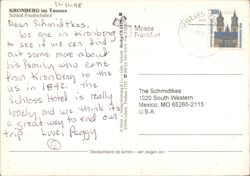 KRONBERG im Taunus
Schloß Friedrichshof
11-11-98
Dear Schmidtkes,
We are in Kronberg
to see if we can find
out some more about
his family who came
from Kronberg to the
US in 1842. The
Schloss Hotel is really
lovely and we think its
a great way to end our
trip. Love, Peggy
Messe
Frankfurt
200
The Schmidtkes
1020 South Western
Mexico, MO 65265-2115
U.S.A
Deutschland ist schön – wir zeigen es!